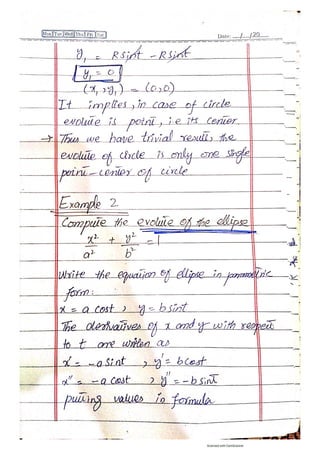 Mon Tue Wed Thu Fri Sat
Date: __/__/20__
y₁ = R sint - R sint
y₁ = 0
(x₁, y₁) = (0,0)
It implies, in case of circle
evolute is point, i.e its center.
→ Thus we have trivial result, the
evolute of circle is only one single
point - center of circle
Example 2
Compute the evolute of the ellipse
x²/a² + y²/b² = 1
Write the equation of ellipse in parametric
form:
x = a cost , y = b sint
The derivatives of x and y with respect
to t are written as
x' = -a sint , y' = b cost
x'' = -a cost , y'' = -b sint
putting values in formula
Scanned with CamScanner